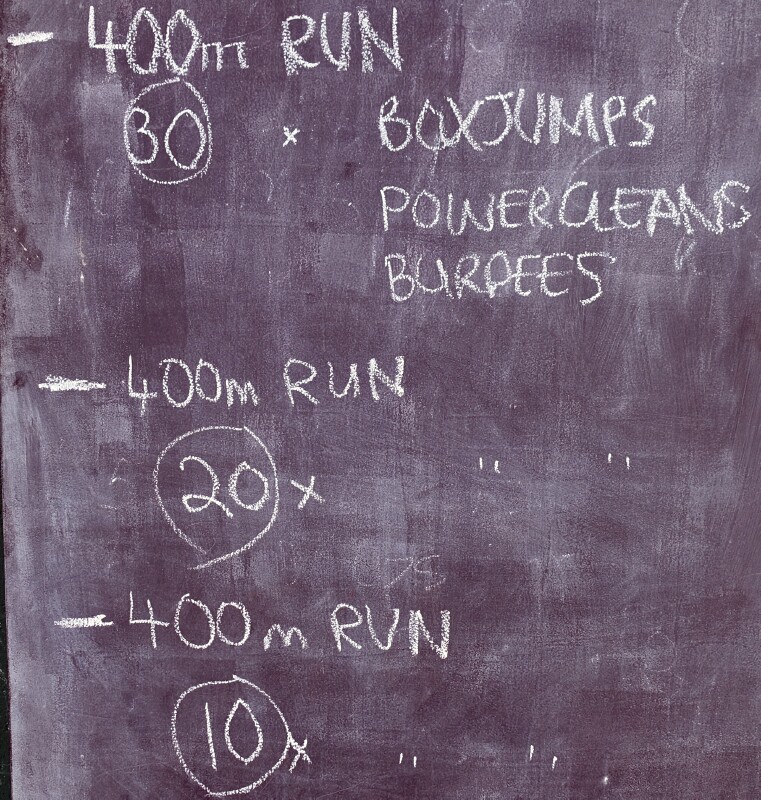 - 400m RUN
30 x BOXJUMPS
POWERCLEANS
BURPEES
- 400m RUN
20 x " "
- 400m RUN
10 x " "